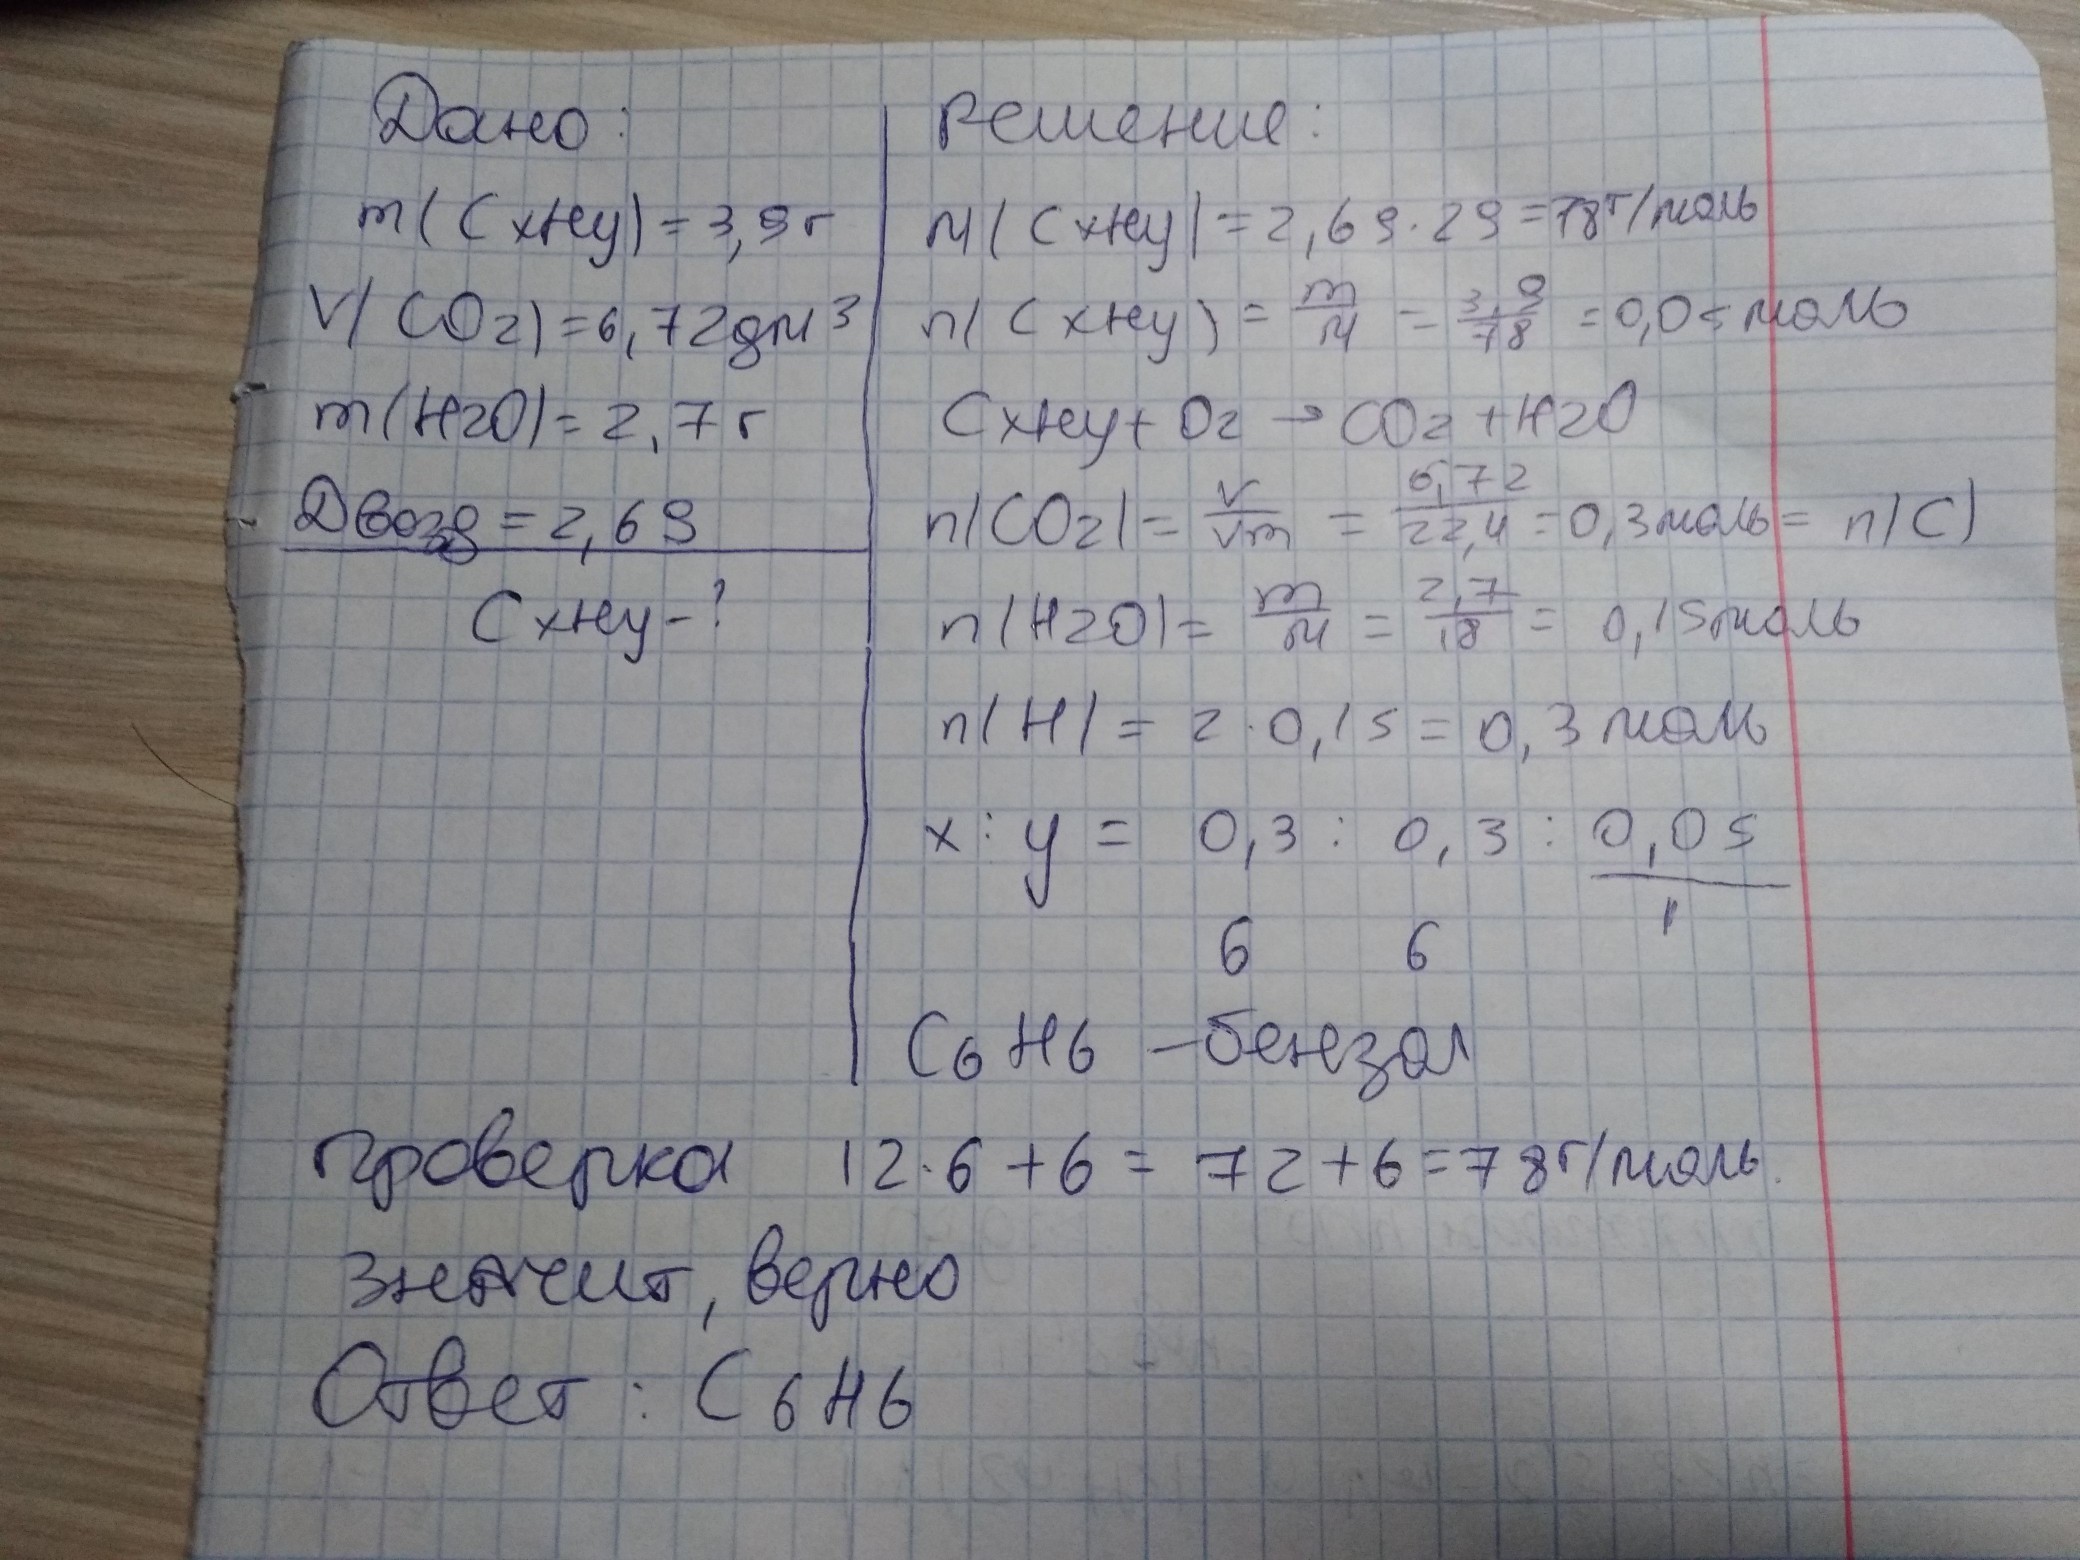 Дано:
m(CxHy)=3,9г
V(CO2)=6,72дм3
m(H2O)=2,7г
Dвозд=2,69
CxHy-?
Решение:
M(CxHy)=2,69·29=78г/моль
n(CxHy)=m/M=3,9/78=0,05моль
CxHy+O2→CO2+H2O
n(CO2)=V/Vm=6,72/22,4=0,3моль=n(C)
n(H2O)=m/M=2,7/18=0,15моль
n(H)=2·0,15=0,3моль
x:y=0,3:0,3:0,05
6 6 1
C6H6-бензол
Проверка 12·6+6=72+6=78г/моль.
значит, верно
Ответ: C6H6